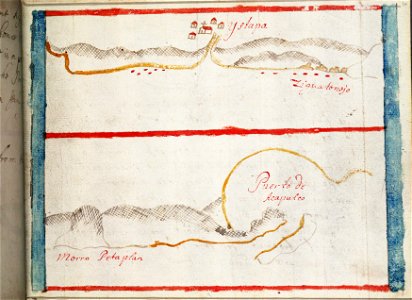 Ystapa
Ziguatanejo
Puerto de
Acapulco
Morro Petaplan